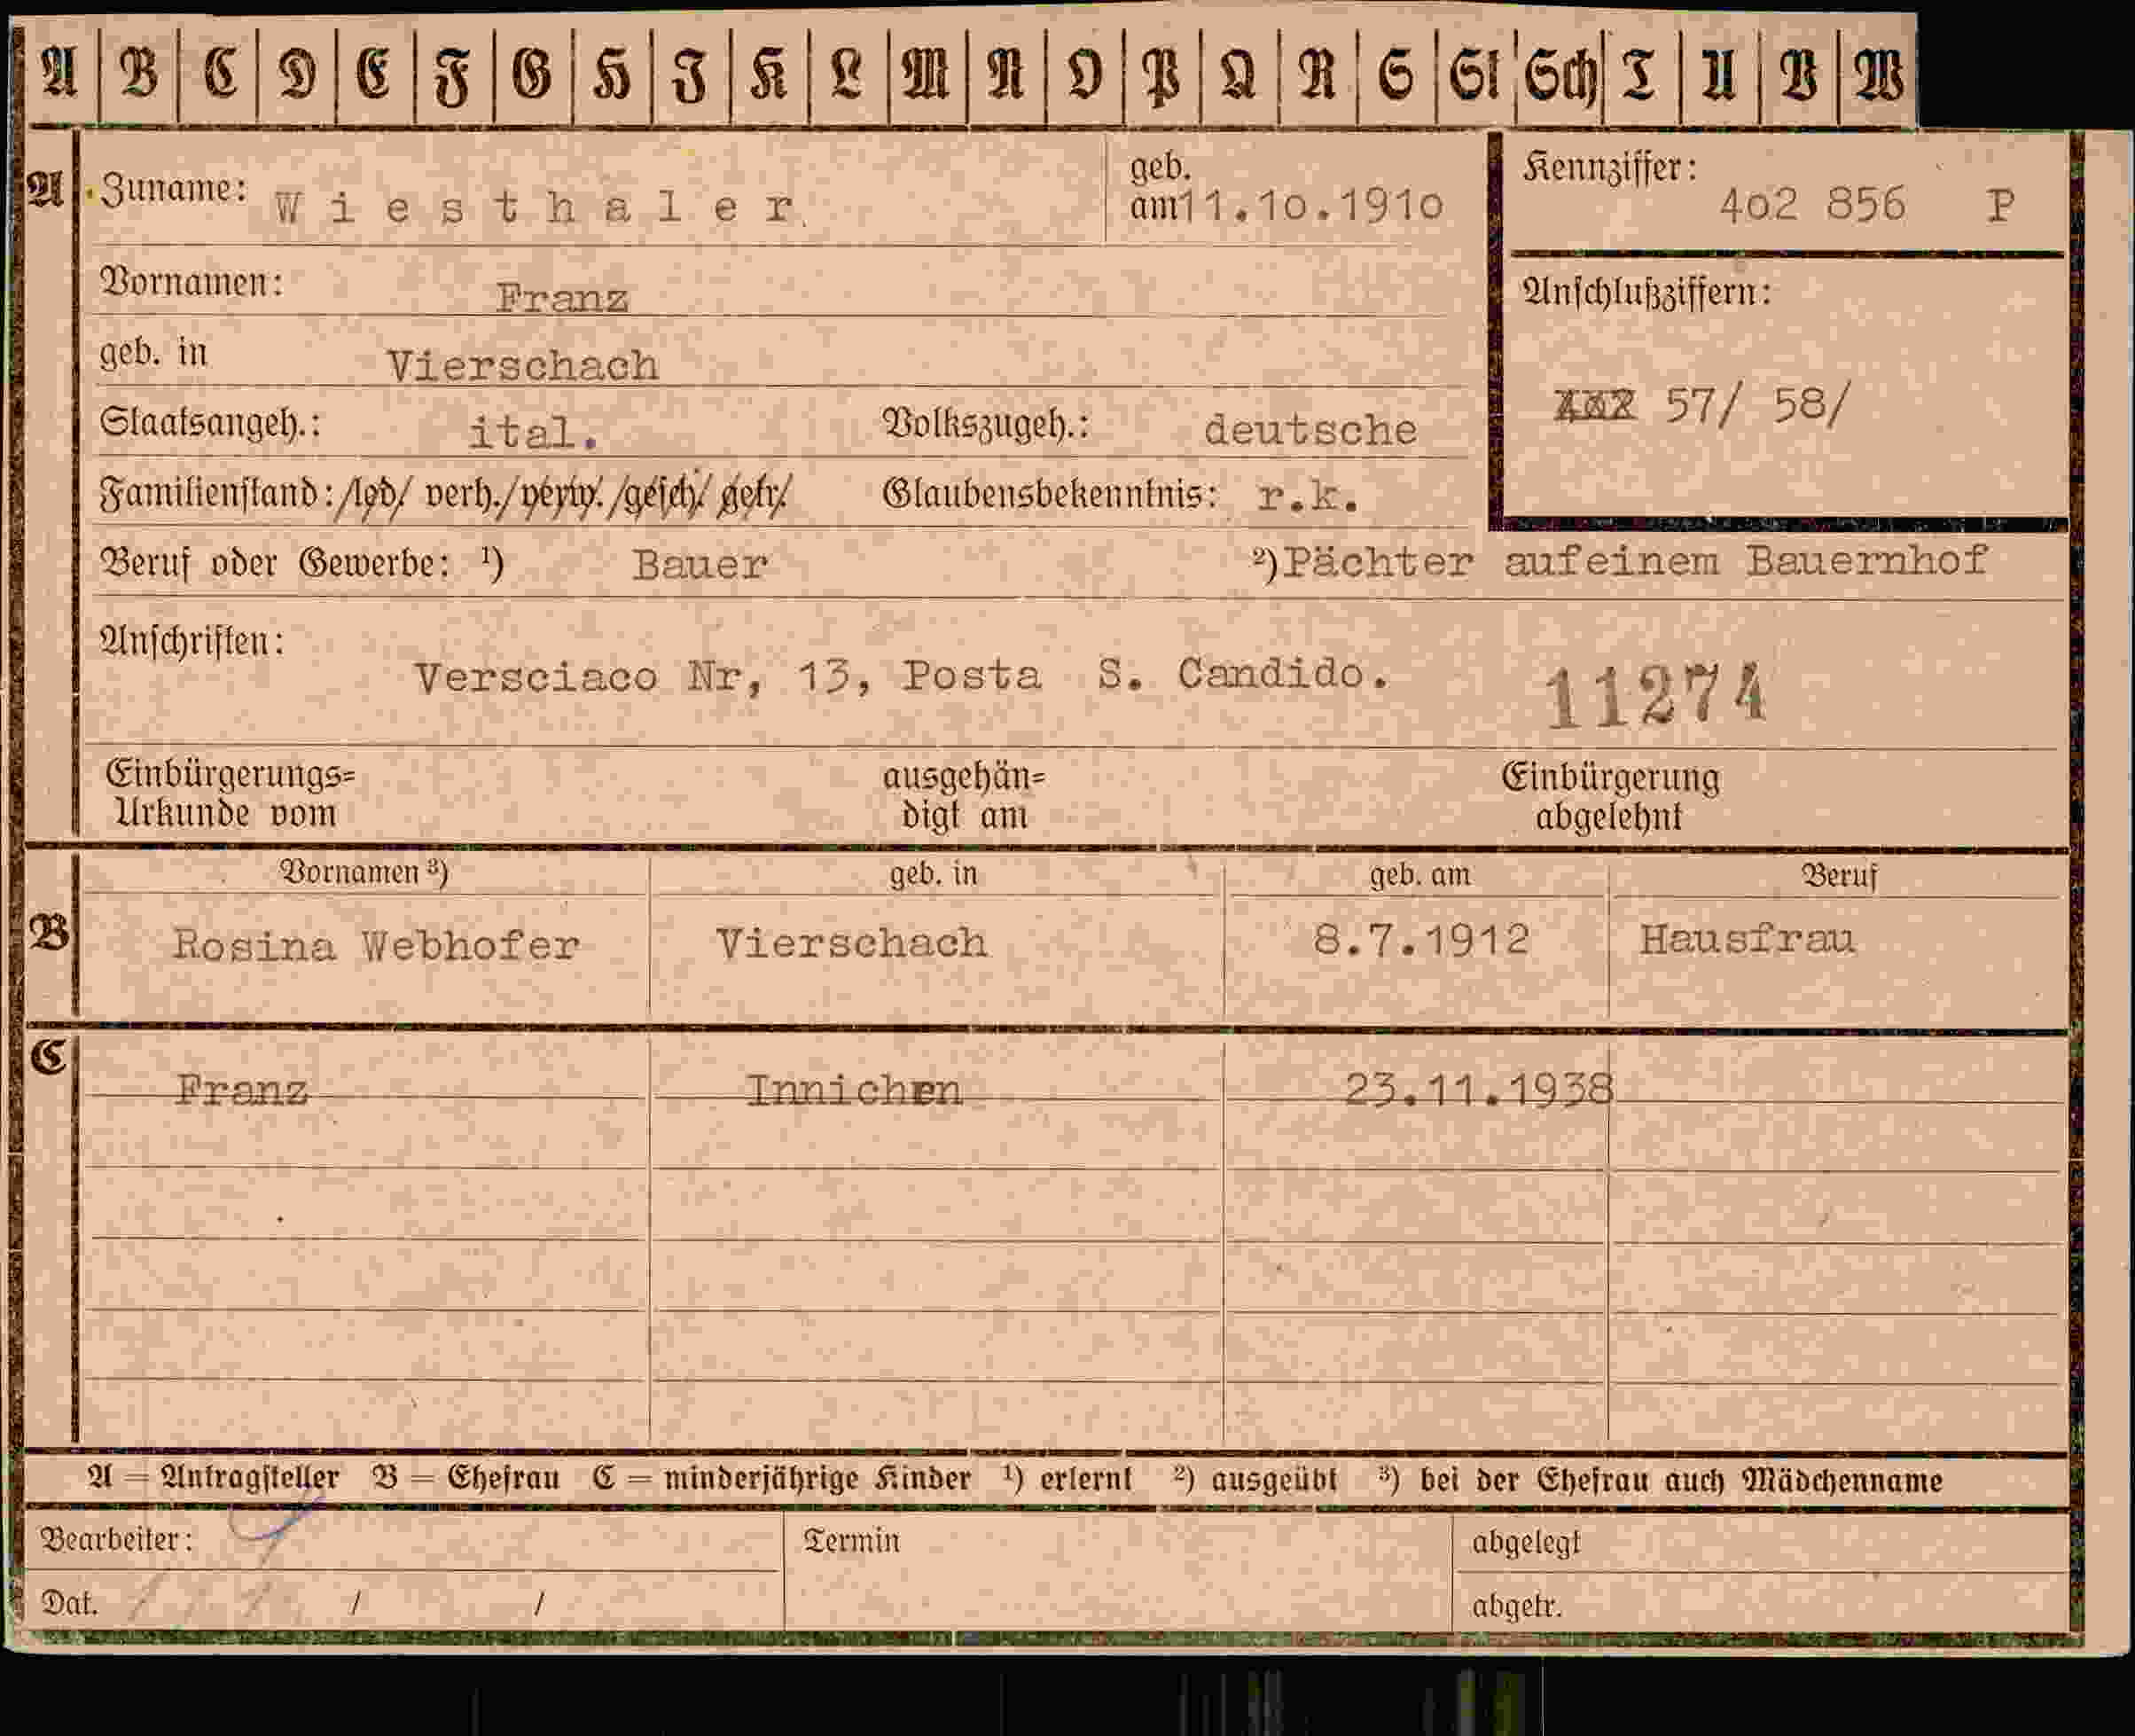 A B C D E F G H J K L M N O P Q R S St Sch T U V W
A Zuname: Wiesthaler geb. am 11.10.1910 Kennziffer: 402 856 P
Vornamen: Franz
Anschlußziffern:
geb. in Vierschach
57/ 58/
Staatsangeh.: ital. Volkszugeh.: deutsche
Familienstand: /led/ verh./verw./gesch/ getr/ Glaubensbekenntnis: r.k.
Beruf oder Gewerbe: ¹) Bauer ²) Pächter aufeinem Bauernhof
Anschriften:
Versciaco Nr, 13, Posta S. Candido. 11274
Einbürgerungs= ausgehän= Einbürgerung
Urkunde vom digt am abgelehnt
Vornamen ³) geb. in geb. am Beruf
B Rosina Webhofer Vierschach 8.7.1912 Hausfrau
C
Franz Innichen 23.11.1938
A = Antragsteller B = Ehefrau C = minderjährige Kinder ¹) erlernt ²) ausgeübt ³) bei der Ehefrau auch Mädchenname
Bearbeiter: Termin abgelegt
Dat. / / abgetr.